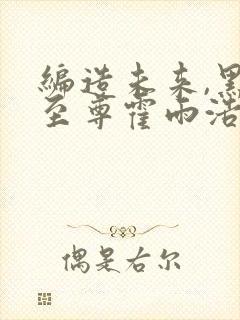 编造未来,黑
至尊霍雨浩
偶是右尔